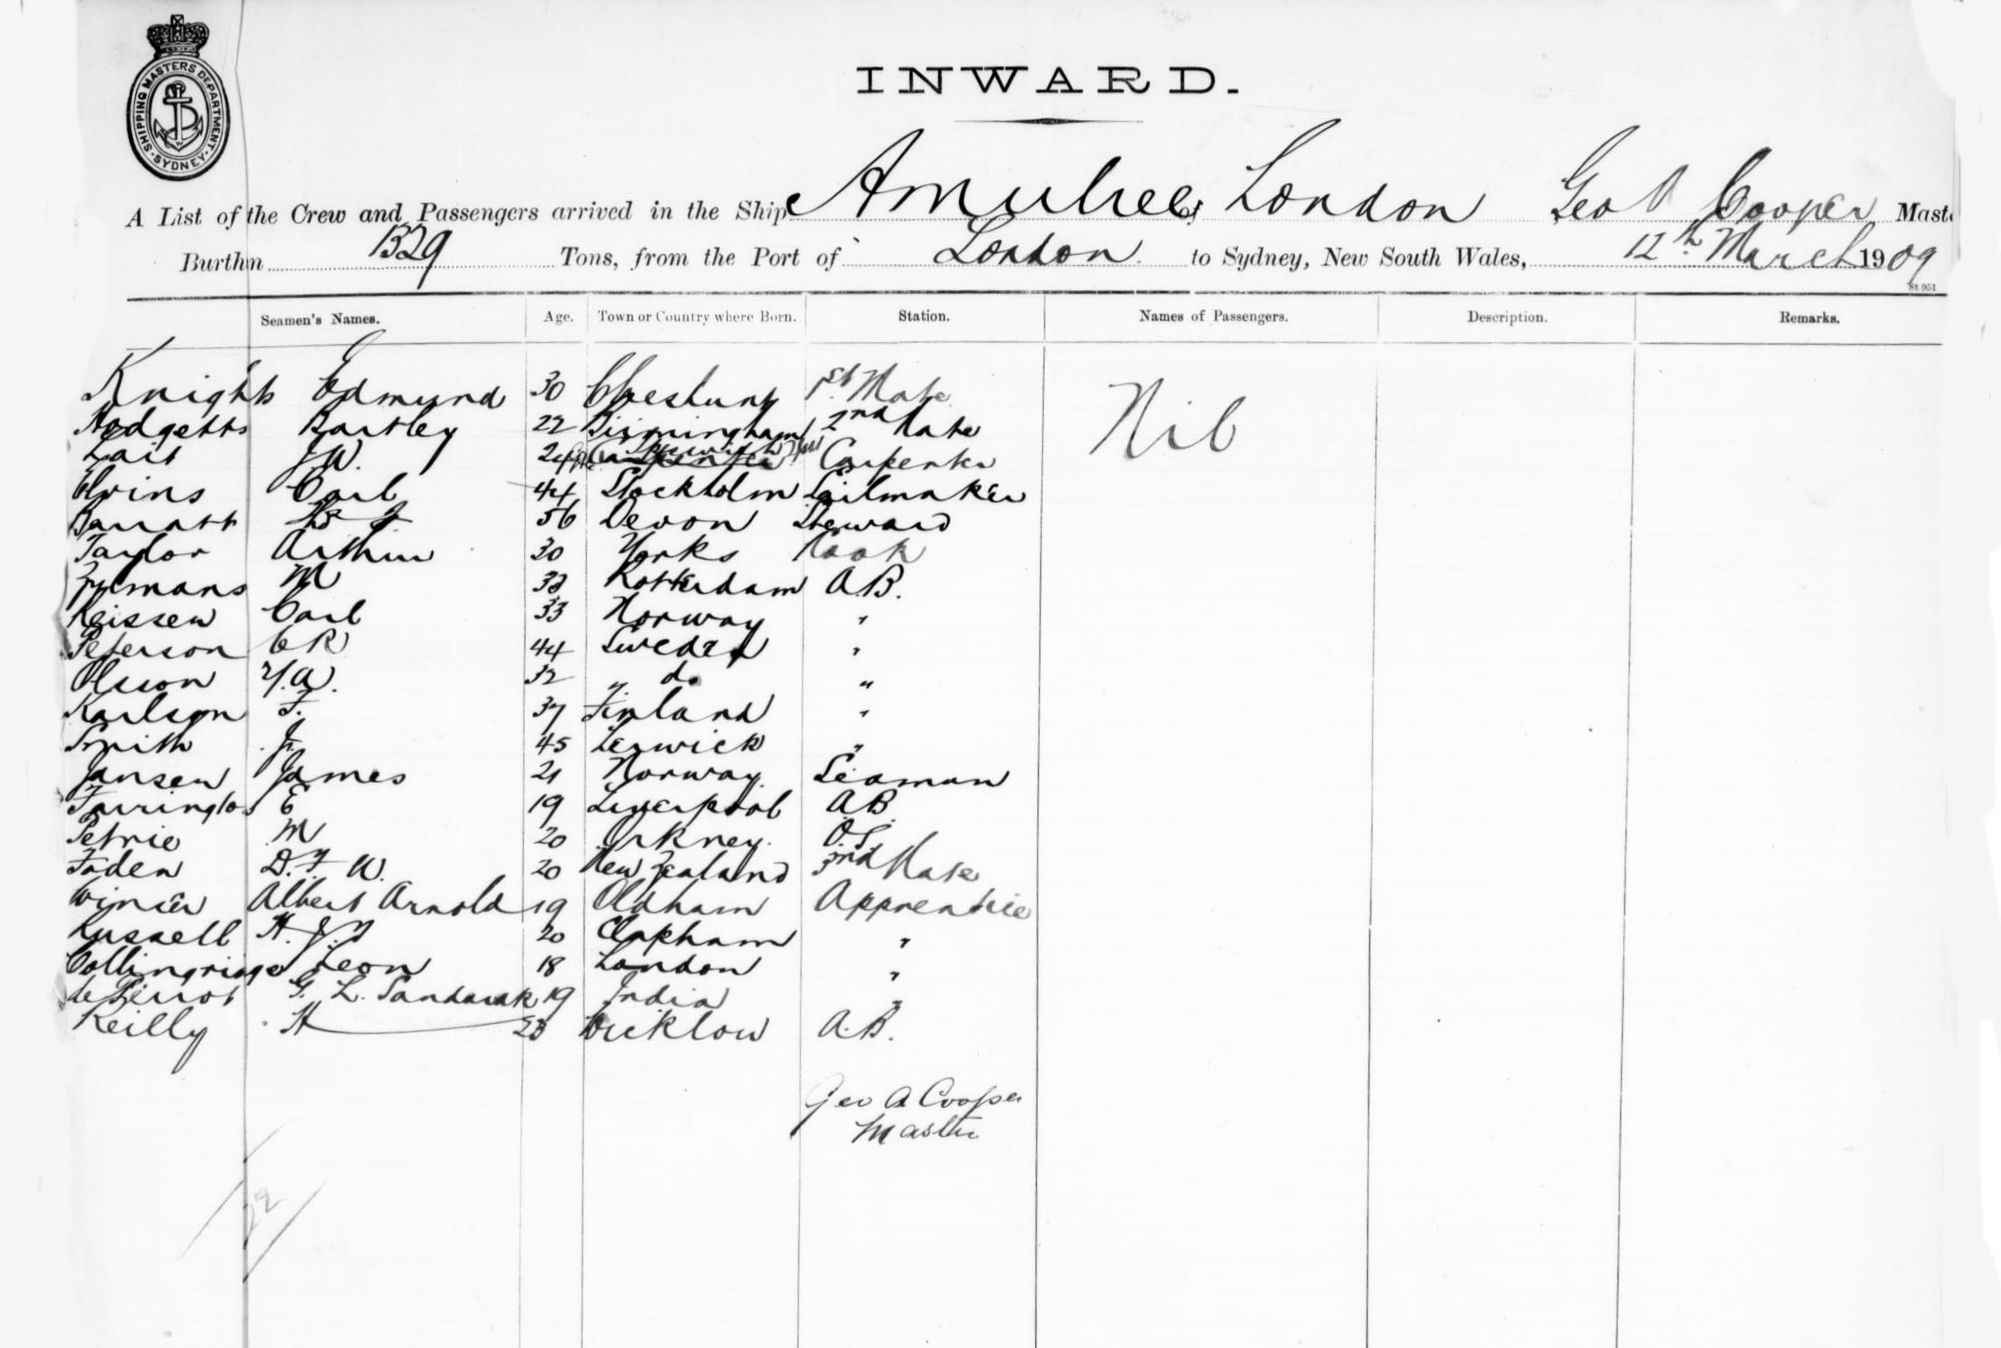 SHIPPING MASTERS DEPARTMENT · SYDNEY ·
INWARD.
A List of the Crew and Passengers arrived in the Ship Amulree of London Geo A Cooper Maste
Burthen 1329 Tons, from the Port of London to Sydney, New South Wales, 12th March 1909
St 951
Seamen's Names. Age. Town or Country where Born. Station. Names of Passengers. Description. Remarks.
Knight Edmund 30 Cheshunt 1st Mate Nil
Hodgetts Bartley 22 Birmingham 2nd Mate
J W. 24 Carpenter
Carl 44 Stockholm Sailmaker
Barratt 56 Devon Steward
Taylor Arthur 30 Yorks Cook
M Rotterdam A.B.
Reissen Carl 33 Norway "
Peterson C R 44 Sweden "
Olsson 32 " do "
Karlson F. 37 Finland "
Smith J. 45 Lerwick "
Jansen James 21 Norway. Seaman
Farrington E 19 Liverpool A.B.
Petrie M 20 Orkney. O.S.
Foden D. F. W. 20 New Zealand 3rd Mate
Albert Arnold 19 Oldham Apprentice
Russell H. J. 20 Clapham "
Collingridge Leon 18 London "
de Perrot G. L. Sandarak 19 India "
Reilly H 23 Wicklow A.B.
Geo A Cooper
Master
22